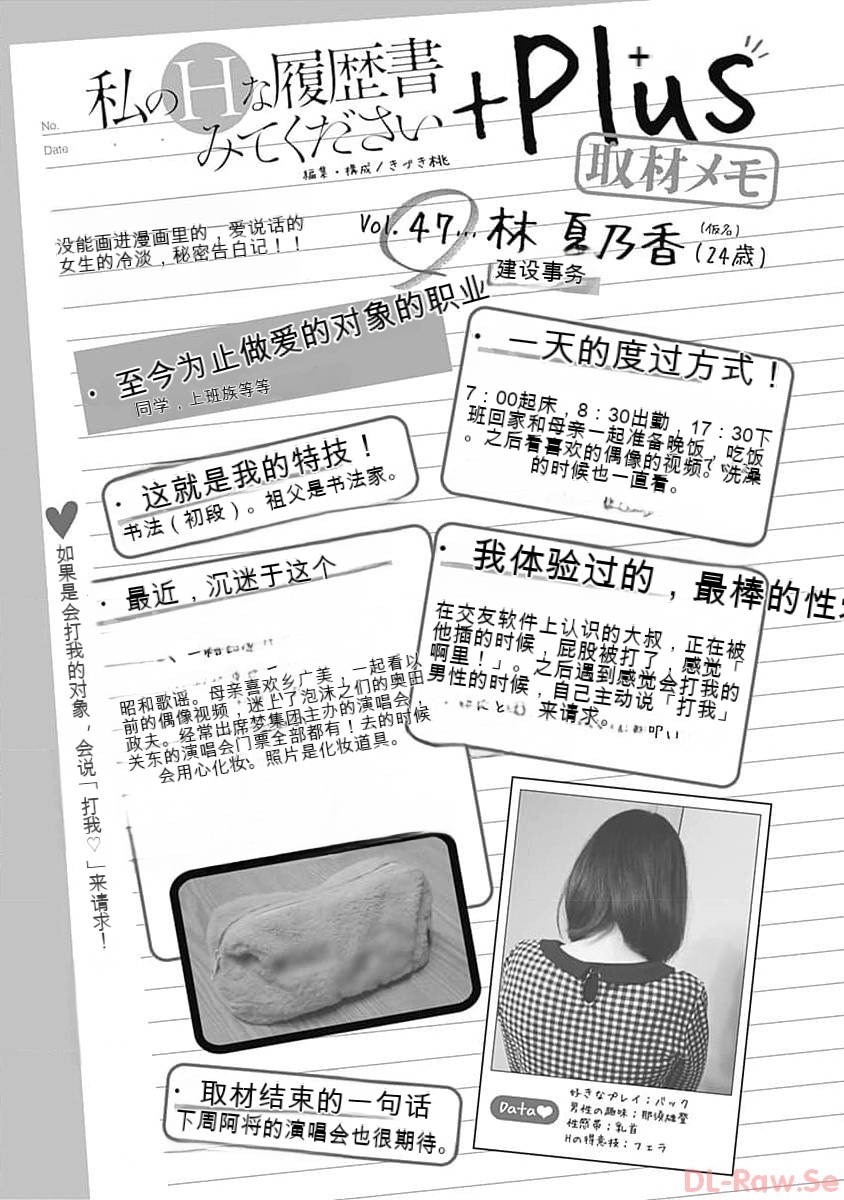 No.
Date
私のHな履歴書
みてください
+Plus
編集・構成/きづき桃
取材メモ
没能画进漫画里的，爱说话的
女生的冷淡，秘密告白记！！
Vol. 47... 林 夏乃香 (仮名) (24歳)
建设事务
·至今为止做爱的对象的职业
同学，上班族等等
·一天的度过方式！
7：00起床，8：30出勤，17：30下
班回家和母亲一起准备晚饭，吃饭
。之后看喜欢的偶像的视频。洗澡
的时候也一直看。
·这就是我的特技！
书法（初段）。祖父是书法家。
♥如果是会打我的对象，会说「打我♡」来请求！
·最近，沉迷于这个
昭和歌谣。母亲喜欢乡广美，一起看以
前的偶像视频，迷上了泡沫之们的奥田
政夫。经常出席梦集团主办的演唱会，
关东的演唱会门票全部都有！去的时候
会用心化妆。照片是化妆道具。
·我体验过的，最棒的性
在交友软件上认识的大叔，正在被
他插的时候，屁股被打了，感觉「
啊里！」。之后遇到感觉会打我的
男性的时候，自己主动说「打我」
来请求。
·取材结束的一句话
下周阿将的演唱会也很期待。
Data♥
好きなプレイ：バック
男性の趣味：那須雄登
性感帯：乳首
Hの得意技：フェラ
DL-Raw.Se